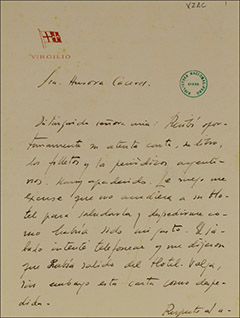 VIRGILIO
Sra. Aurora Cáceres.
Distinguida señora mía: Recibí opor-
tunamente su atenta carta, su libro,
los folletos y los periódicos argenti-
nos. Muy agradecido. Le ruego me
excuse que no acudiera a su Ho-
tel para saludarla y despedirme co-
mo hubiera sido mi gusto. El sá-
bado intenté telefonear y me dijeron
que había salido del Hotel. Valga,
sin embargo esta carta como despe-
dida.
Respecto al a-